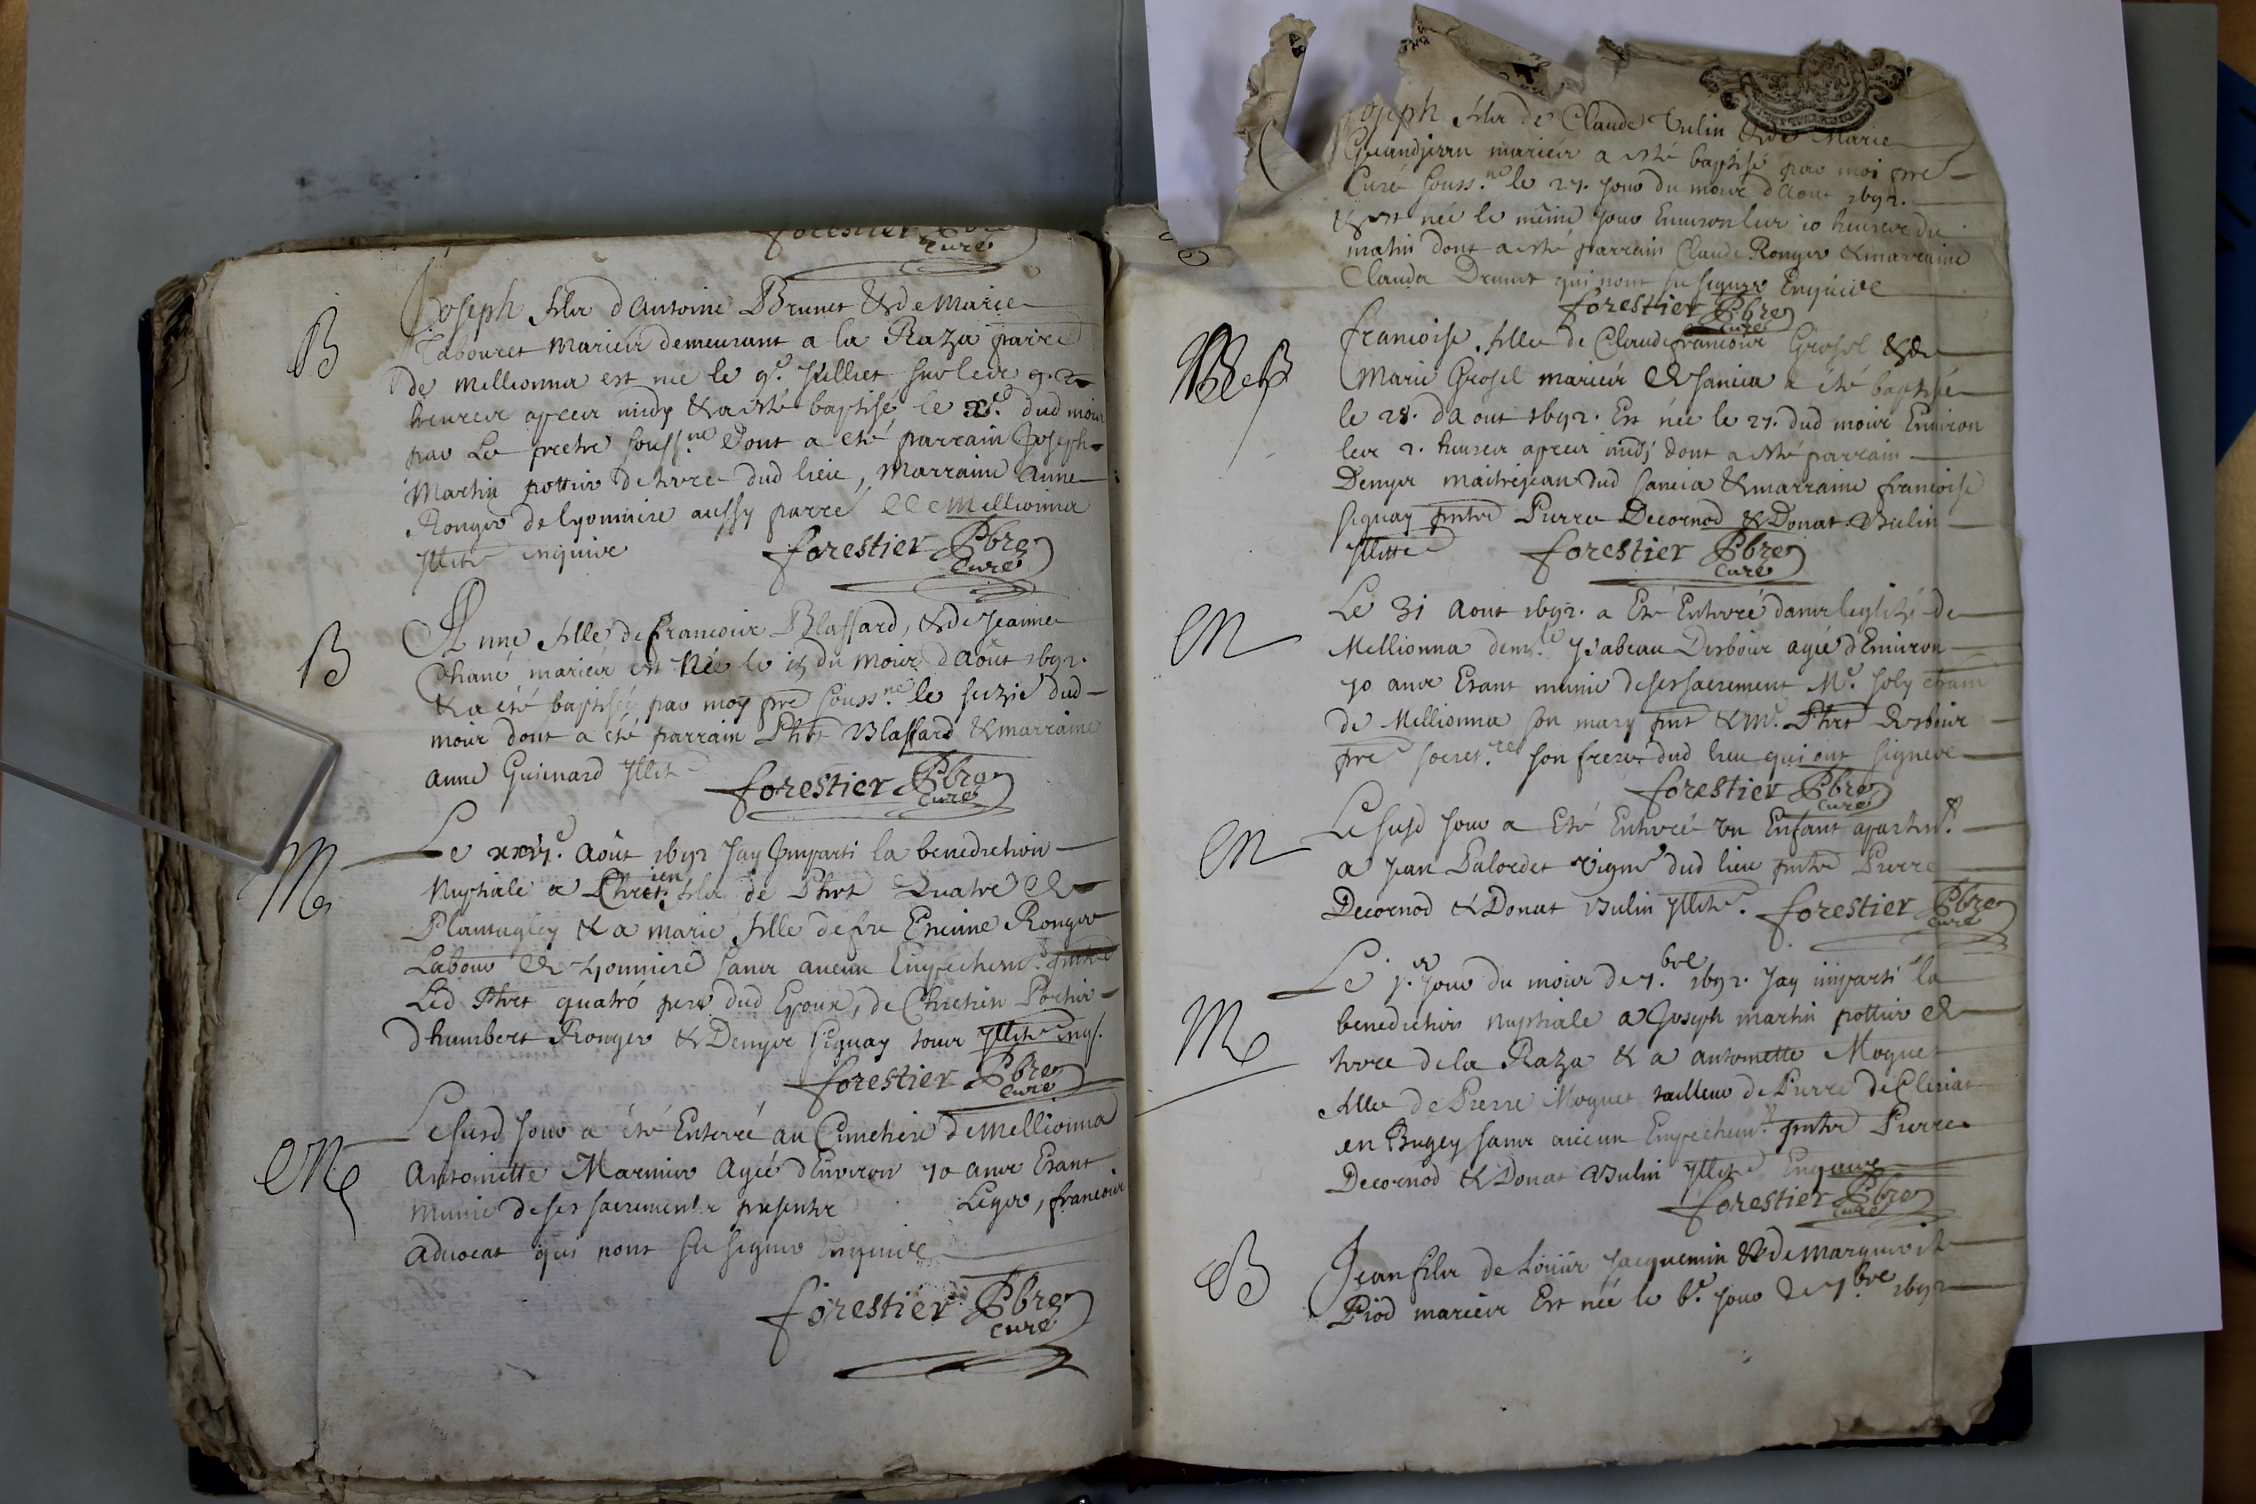 forestier Pbre
curé
B
Joseph fils d'Antoine Brunet & de Marie
Tabouret mariés demeurant a la Raza parre
de mellionna est né le 9e Juilliet sur les
heures apres midy & a esté baptisé le xe dud mois
par Le pretre souss.né Dont a eté parrain Joseph
Martin pottier de terre dud lieu, Marraine Anne
Ronger de lyonniere aussy parre de Mellionna
Illité enquise
forestier Pbre
curé
B
Anne fille de francois Blassard, & de Jeanne
Chané mariés est née le 15 du mois d'Aoust 1692.
& a été baptisée par moy pre souss.né le seizie dud
mois dont a été parrain Phrt Blassard & marraine
Anne Guienard Illité
forestier Pbre
curé
M
Le xxvj.e Aout 1692 Jay Imparti la benediction
Nuptiale a Chret.ien fils de Phrt Quatre de
& a marie fille de feu Etienne Ronger
Labour de Lyonniere sans aucun Enpechemt
Led Phrt quatré pere dud Epoux, de Chretien Portier
d'humbert Ronger & Denys Piquay tous Illité enqs.
forestier Pbre
curé
EM
Le susd jour a été Enterré au Cimetiere de Mellionna
Antoinette Marmier Agée d'Environ 70 ans Etant
munie de ses sacrements presents Leger, francois
advocat qui n'ont su signer enquise
forestier Pbre
curé
Joseph fils de Claude Vulin & de Marie
Grandjean mariés a esté baptisé par moi pre
Curé souss.né le 27. jour du mois d'Aout 1692.
& est né le même jour Environ les 10 heures du
matin dont a esté parrain Claude Ronger & marraine
Clauda Brunet qui n'ont su signer Enquise
forestier Pbre
curé
B
francoise fille de Claude francois Grosel & de
Marie Grosel mariés de Sancia a été baptisée
le 28. daout 1692. Est née le 27. dud mois Environ
les 2. heures apres midj dont a esté parrain
Denys maitrejean dud Sancia & marraine francoise
Piquay pntre Pierre Decornod & Donat Vulin
Illitté
forestier Pbre
curé
EM
Le 31 Aout 1692. a Eté Enterré dans leglise de
Mellionna dem.le Ysabeau Desbois agée d'Environ
70 ans Etant munie de ses sacrement Mr. Joly
de Mellionna son mary pnt & Mr. Phrt Desbois
pre son frere dud lieu qui ont signéve
forestier Pbre
curé
EM
Le susd jour a Eté Enterré un Enfant apartent
a Jean Palordet vigne dud lieu pntre Pierre
Decornod & Donat Vulin Illité. forestier Pbre
curé
M
Le j.er jour du mois de 7.bre 1692. Jay imparti la
benediction nuptiale a Joseph martin pottier de
terre de la Raza & a antoinette Moquet
fille de Pierre Moquet tailleur de Pierre de Cleriat
en Bugey sans aucun Enpechemt pntre Pierre
Decornod & Donat Vulin Illité Enquis
forestier Pbre
curé
B
Jean fils de Louis Jacquemin & de marguerite
Piod mariés Est né le 6.e jour de 7.bre 1692